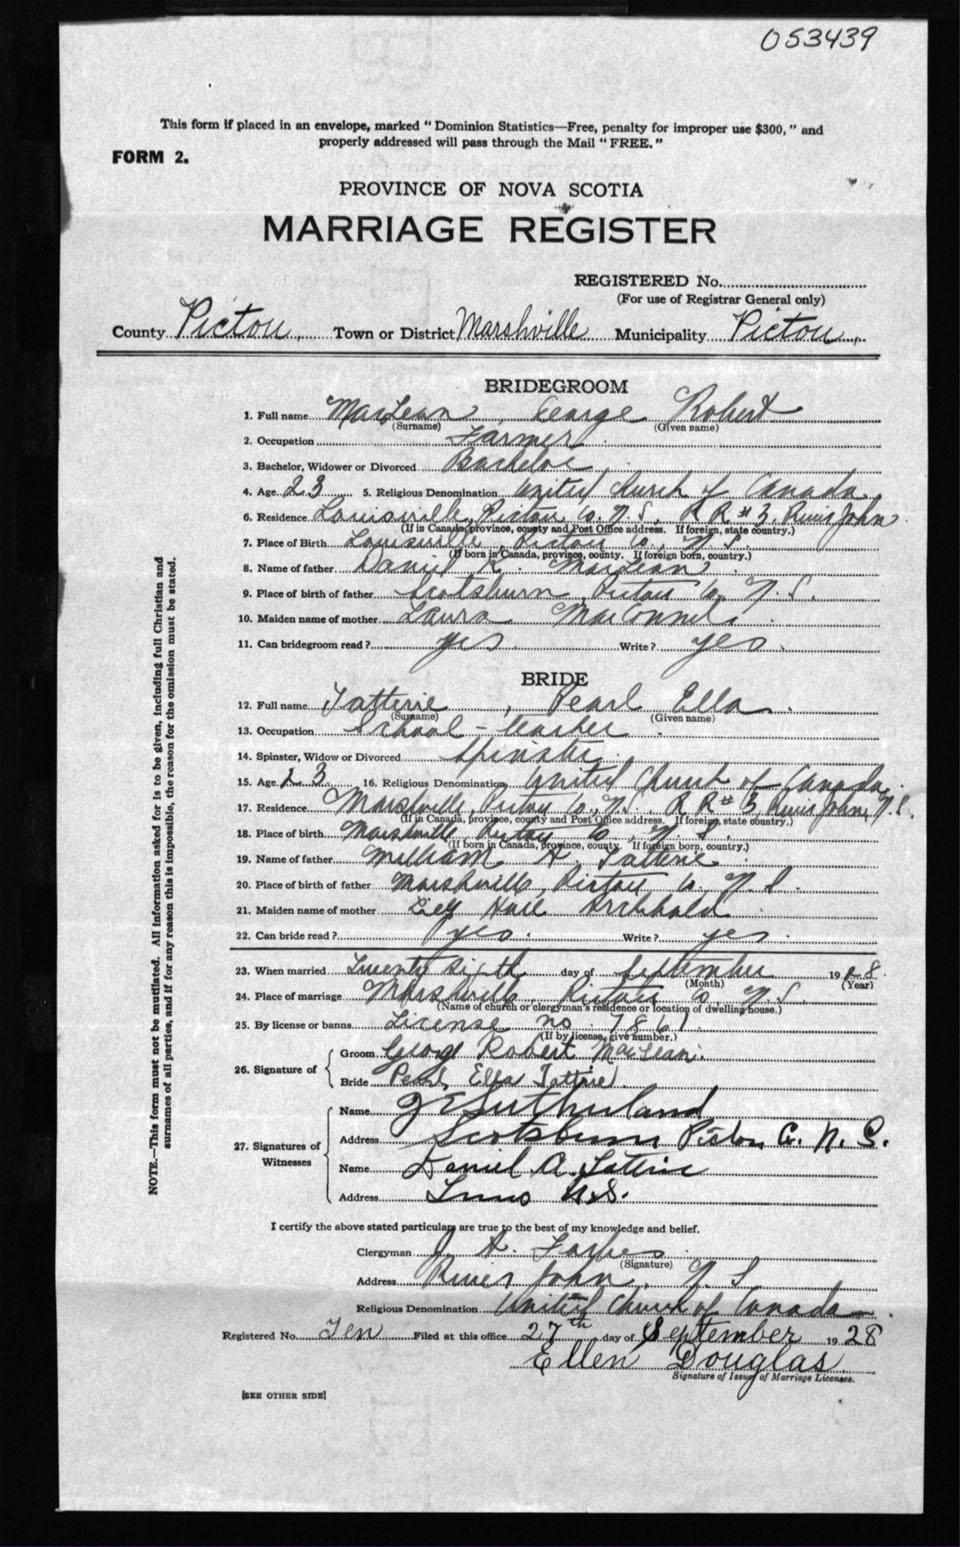 053439
This form if placed in an envelope, marked "Dominion Statistics—Free, penalty for improper use $300," and
properly addressed will pass through the Mail "FREE."
FORM 2.
PROVINCE OF NOVA SCOTIA
MARRIAGE REGISTER
REGISTERED No.
(For use of Registrar General only)
County Pictou Town or District Marshville Municipality Pictou
BRIDEGROOM
1. Full name MacLean George Robert
(Surname) (Given name)
2. Occupation Farmer
3. Bachelor, Widower or Divorced Bachelor
4. Age 23 5. Religious Denomination United Church of Canada
6. Residence Louisville, Pictou Co. N.S. R R #3, River John
(If in Canada, province, county and Post Office address. If foreign, state country.)
7. Place of Birth Louisville, Pictou Co, N.S.
(If born in Canada, province, county. If foreign born, country.)
8. Name of father Daniel R. MacLean
9. Place of birth of father Scotsburn, Pictou Co, N.S.
10. Maiden name of mother Laura
11. Can bridegroom read? yes Write? yes
BRIDE
12. Full name Tatterie, Pearl Ella
(Surname) (Given name)
13. Occupation School-teacher
14. Spinster, Widow or Divorced Spinster
15. Age 23 16. Religious Denomination United Church of Canada
17. Residence Marshville, Pictou Co., N.S. R R #3, River John, N.S.
(If in Canada, province, county and Post Office address. If foreign, state country.)
18. Place of birth Marshville Pictou Co, N.S.
(If born in Canada, province, county. If foreign born, country.)
19. Name of father William A Tatterie
20. Place of birth of father Marshville, Pictou Co, N.S.
21. Maiden name of mother Archbald
22. Can bride read? yes. Write? yes.
23. When married Twenty Sixth day of September 1928.
(Month) (Year)
24. Place of marriage Marshville Pictou Co, N.S.
(Name of church or clergyman's residence or location of dwelling house.)
25. By license or banns License no. 7861
(If by license, give number.)
26. Signature of
Groom George Robert MacLean.
Bride Pearl Ella Tattrie.
27. Signatures of
Witnesses
Name J E Sutherland
Address Scotsburn Pictou Co. N.S.
Name Daniel A. Tattrie
Address N.S.
I certify the above stated particulars are true to the best of my knowledge and belief.
Clergyman J. A. Forbes
(Signature)
Address River John, N.S
Religious Denomination United Church of Canada
Registered No. Ten Filed at this office 27th day of September 1928
Ellen Douglas
Signature of Issuer of Marriage Licenses.
[SEE OTHER SIDE]
NOTE.—This form must not be mutilated. All information asked for is to be given, including full Christian and
surnames of all parties, and if for any reason this is impossible, the reason for the omission must be stated.